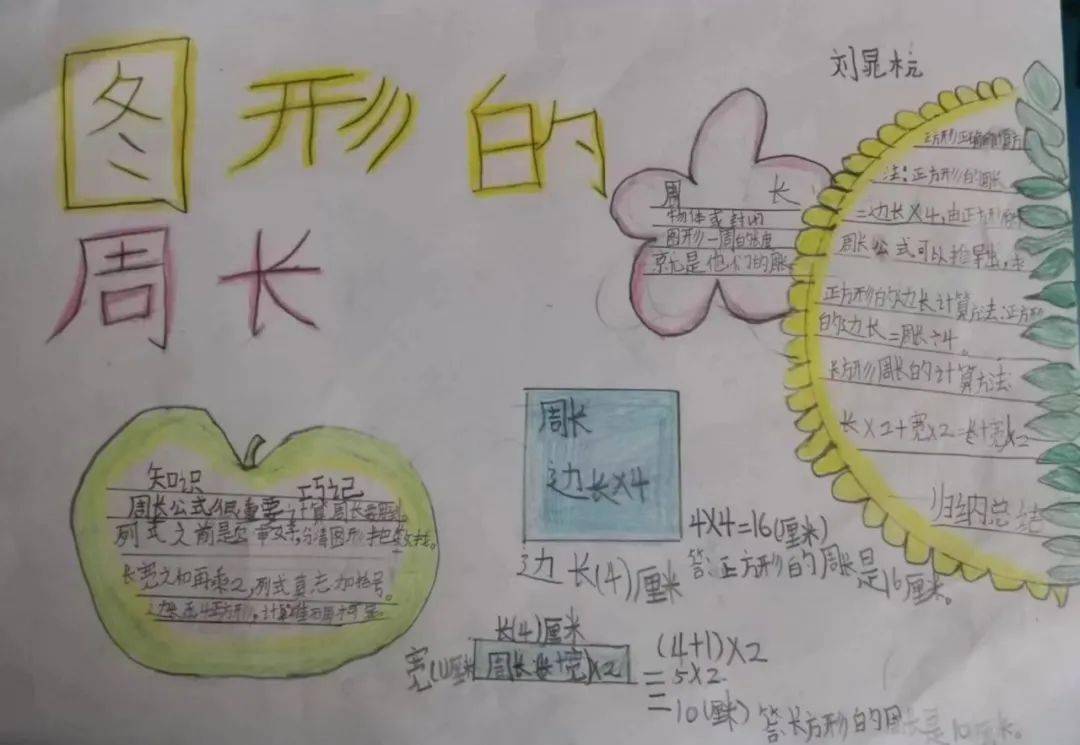 图形的
周长
刘晁杭
周长
物体或封闭
图形一周的长度
就是他们的周长
正方形正确的
注:正方形的周长
=边长×4,由正方形的
周长公式可以推导出,求
正方形的边长计算方法:正方形
的边长=周长÷4。
长方形周长的计算方法
长×2+宽×2=(长+宽)×2
归纳总结
知识巧记
周长公式很重要,计算周长要用到
列式之前是审文字,分清图形
长宽之和再乘2,列式直忘加括号。
边长乘4正方形,计算
周长
边长×4
边长(4)厘米
4×4=16(厘米)
答:正方形的周长是
16厘米。
长(4)厘米
宽(1)厘米
周长(长+宽)×2
(4+1)×2
=5×2
=10(厘米)
答:长方形的周长是10厘米。